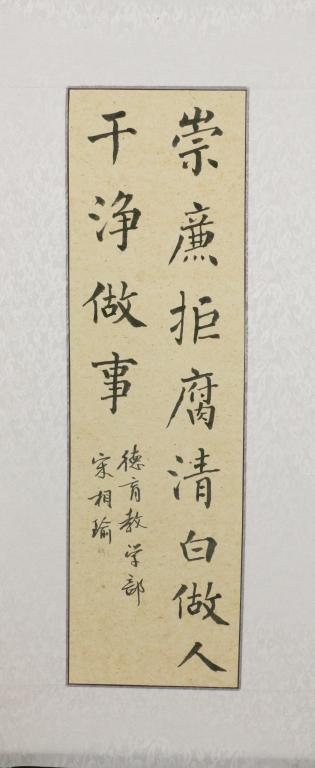 崇廉拒腐清白做人
干净做事
德育教学部
宋相瑜